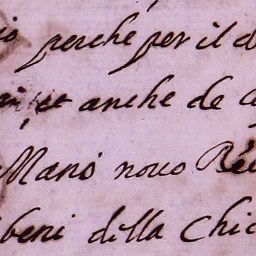 perche per il d
et anche de c
Mano nouo Re
beni della Chie